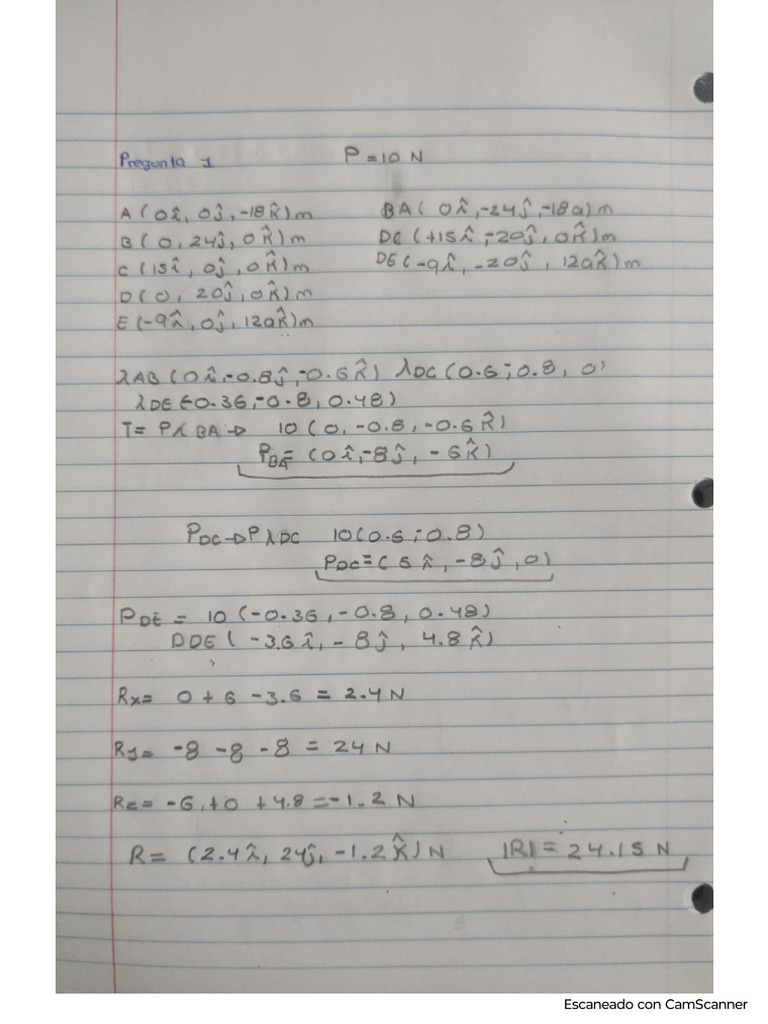 Pregunta 1 P = 10 N
A (0î, 0ĵ, -18k̂)m BA( 0î, -24ĵ, -18a)m
B (0, 24ĵ, 0k̂)m DC (+15î, -20ĵ, 0k̂)m
C (15î, 0ĵ, 0k̂)m DE(-9î, -20ĵ, 12ak̂)m
D(0, 20ĵ, 0k̂)m
E (-9î, 0ĵ, 12ak̂)m
λAB (0î, -0.8ĵ, -0.6k̂) λDC (0.6, -0.8, 0)
λDE(-0.36, -0.8, 0.48)
T = Pλ BA → 10 (0, -0.8, -0.6k̂)
PBA = (0î, -8ĵ, -6k̂)
PDC → PλDC 10(0.6, -0.8)
PDC = (6î, -8ĵ, 0)
PDE = 10 (-0.36, -0.8, 0.48)
DDE ( -3.6î, -8ĵ, 4.8k̂)
Rx = 0 + 6 - 3.6 = 2.4 N
Ry = -8 -8 -8 = 24 N
Rz = -6 + 0 + 4.8 = -1.2 N
R = (2.4î, 24ĵ, -1.2k̂)N |R| = 24.15 N
Escaneado con CamScanner